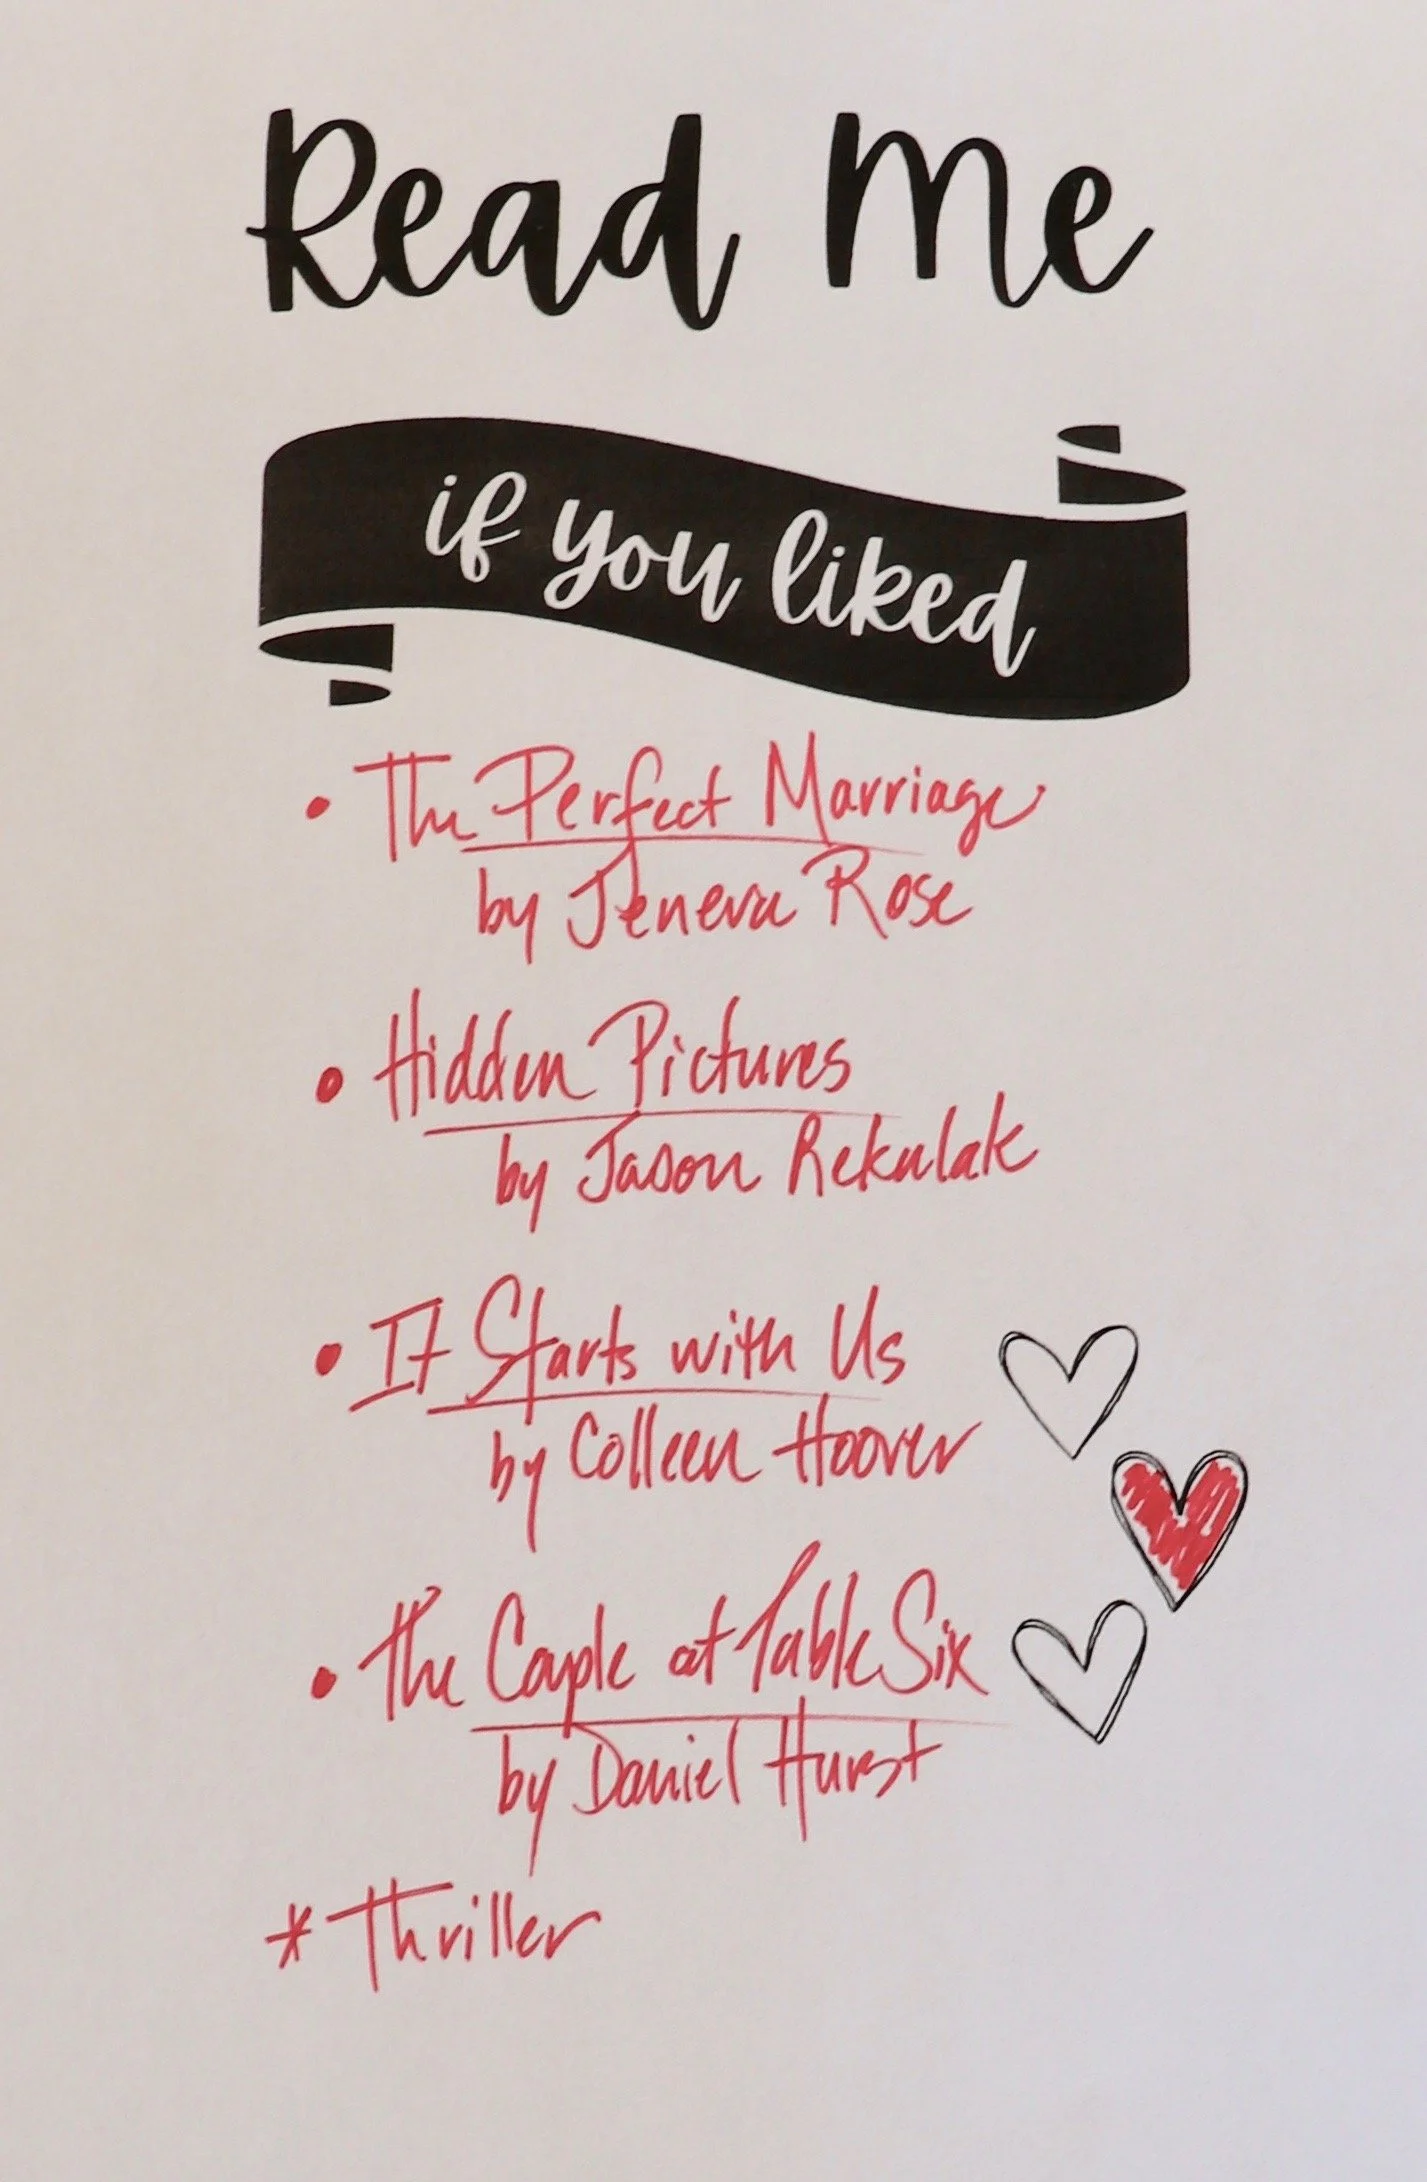 Read Me
if you liked
• The Perfect Marriage
by Jeneva Rose
• Hidden Pictures
by Jason Rekulak
• It Starts with Us
by Colleen Hoover
• The Couple at Table Six
by Daniel Hurst
* Thriller